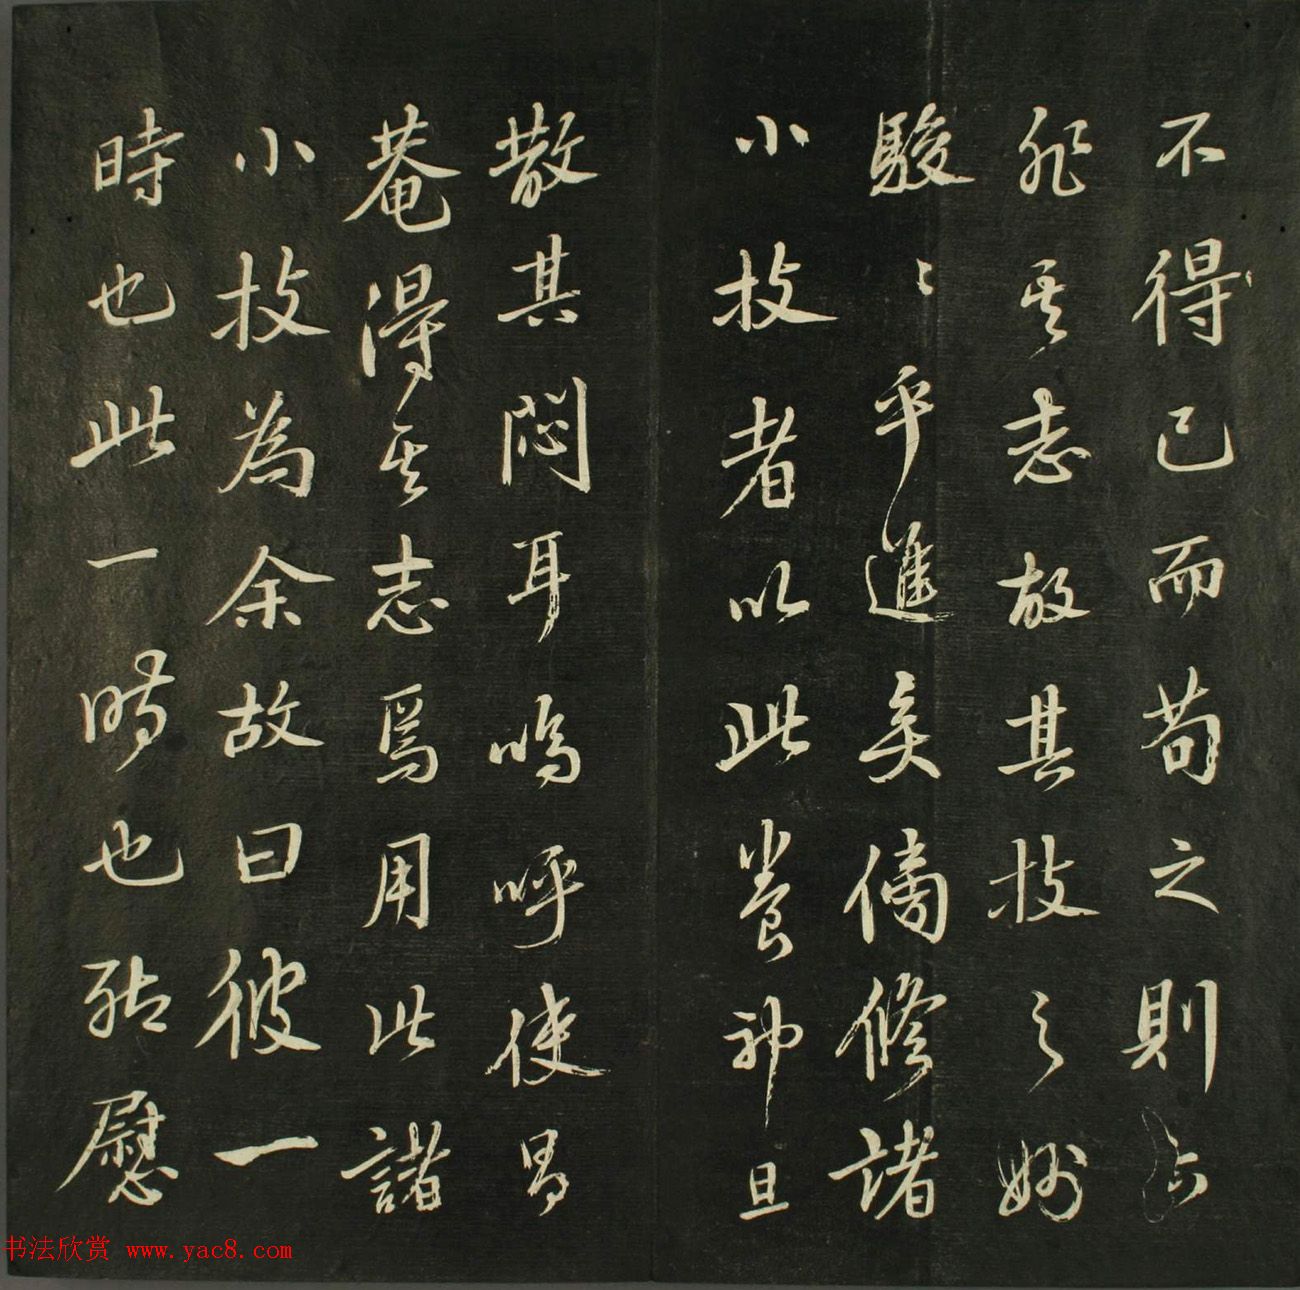 不得已而苟之則亦
非其志故其技之妙
駸〻乎進矣備修諸
小技者以此養神且
散其悶耳嗚呼使昌
菴得其志焉用此諸
小技為余故曰彼一
時也此一時也慰
书法欣赏 www.yac8.com